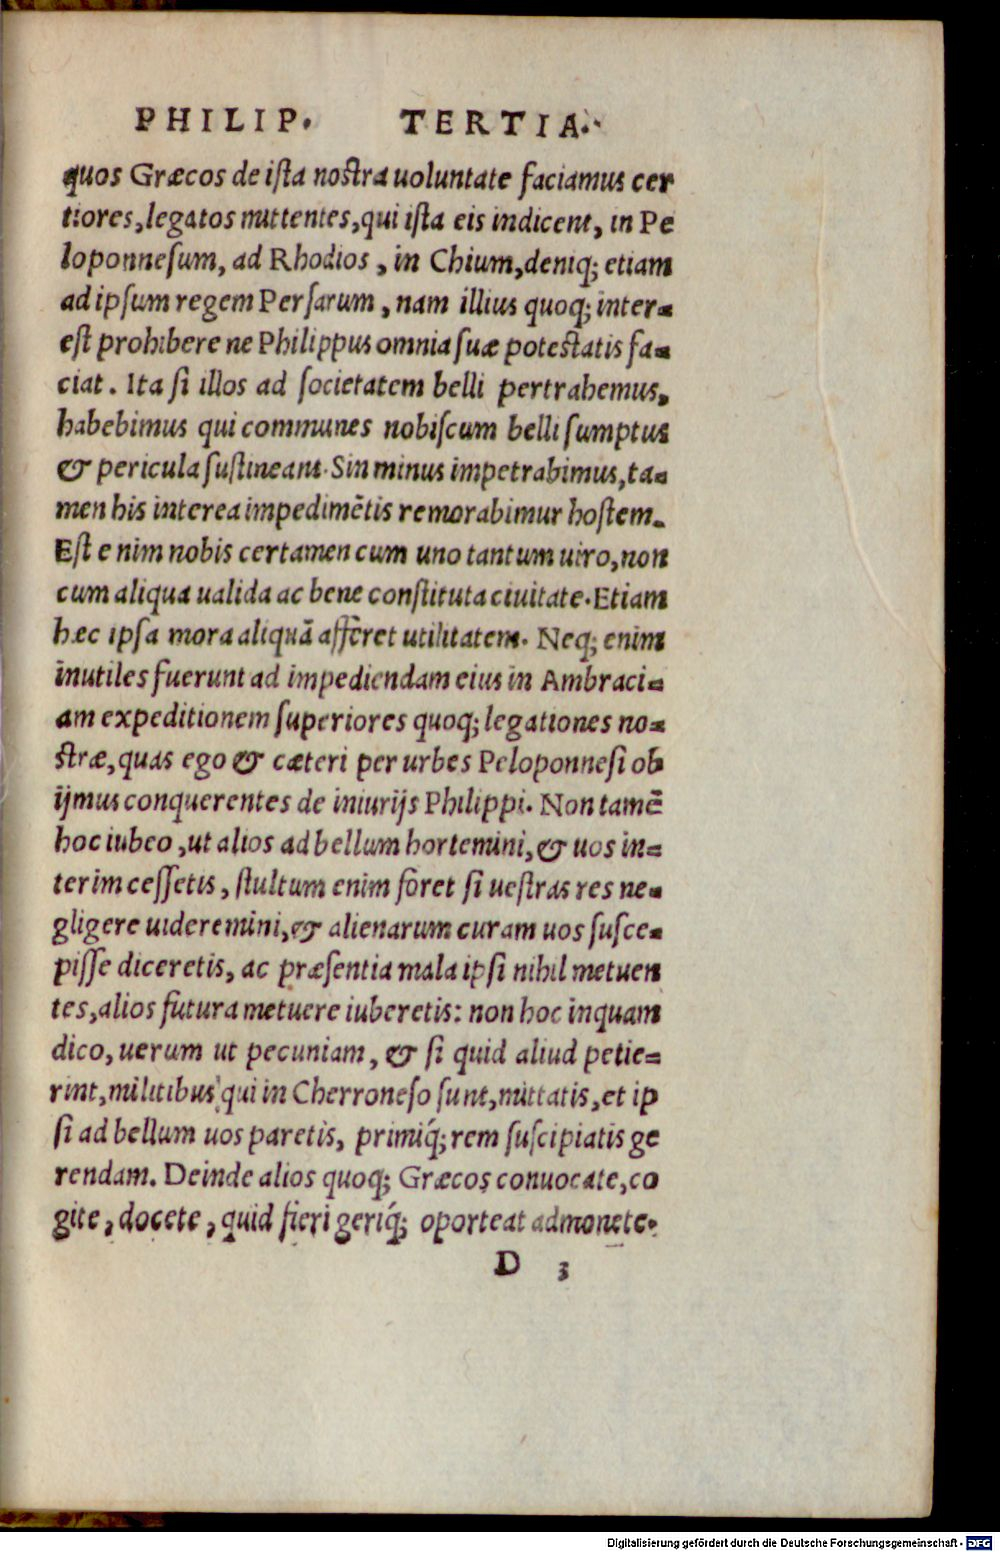 PHILIP. TERTIA.
quos Græcos de ista nostra uoluntate faciamus cer
tiores, legatos mittentes, qui ista eis indicent, in Pe
loponnesum, ad Rhodios, in Chium, deniq; etiam
ad ipsum regem Persarum, nam illius quoq; inter-
est prohibere ne Philippus omnia suæ potestatis fa-
ciat. Ita si illos ad societatem belli pertrahemus,
habebimus qui communes nobiscum belli sumptus
& pericula sustineant. Sin minus impetrabimus, ta-
men his interea impedimētis remorabimur hostem.
Est enim nobis certamen cum uno tantum uiro, non
cum aliqua ualida ac bene constituta ciuitate. Etiam
hæc ipsa mora aliquā afferet utilitatem. Neq; enim
inutiles fuerunt ad impediendam eius in Ambraci-
am expeditionem superiores quoq; legationes no-
stræ, quas ego & cæteri per urbes Peloponnesi ob
ijmus conquerentes de iniurijs Philippi. Non tamē
hoc iubeo, ut alios ad bellum hortemini, & uos in-
terim cessetis, stultum enim foret si uestras res ne-
gligere uideremini, & alienarum curam uos susce-
pisse diceretis, ac præsentia mala ipsi nihil metuen
tes, alios futura metuere iuberetis: non hoc inquam
dico, uerum ut pecuniam, & si quid aliud petie-
rint, militibus qui in Cherroneso sunt, mittatis, et ip
si ad bellum uos paretis, primiq́; rem suscipiatis ge
rendam. Deinde alios quoq; Græcos conuocate, co
gite, docete, quid fieri geriq́; oporteat admonete.
D 3
Digitalisierung gefördert durch die Deutsche Forschungsgemeinschaft - DFG